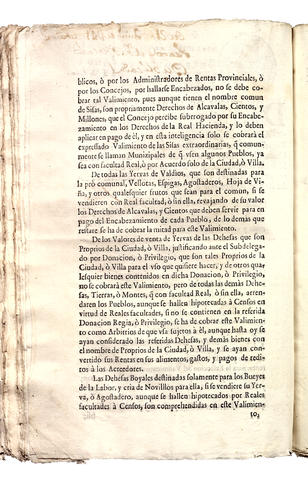 blicos, ò por los Administradores de Rentas Provinciales, ò
por los Concejos, por hallarse Encabezados, no se debe co-
brar tal Valimiento, pues aunque tienen el nombre comun
de Sisas, son propriamente Derechos de Alcavalas, Cientos, y
Millones, que el Concejo percibe subrogado por su Encabe-
zamiento en los Derechos de la Real Hacienda, y lo deben
aplicar en pago de èl, y en esta inteligencia solo se cobrarà el
expressado Valimiento de las Sisas extraordinarias, q̃ comun-
mente se llaman Municipales de q̃ vsen algunos Pueblos, ya
sea con facultad Real, ò por Acuerdo solo de la Ciudad, ò Villa.
De todas las Yervas de Valdios, que son destinadas para
la pro comunal, Vellota, Espigas, Agostaderos, Hoja de Vi-
ña, y otros qualesquier frutos que sean para el comun, si se
vendieren con Real facultad, ò sin ella, revajando de su valor
los Derechos de Alcavalas, y Cientos que deben servir para en
pago del Encabezamiento de cada Pueblo, de lo demàs que
restare se ha de cobrar la mitad para este Valimiento.
De los Valores de venta de Yervas de las Dehesas que son
Proprios de la Ciudad, ò Villa, justificando ante el Subdelega-
do por Donacion, ò Privilegio, que son tales Proprios de la
Ciudad, ò Villa para el vso que quisiere hacer, y de otros qua-
lesquier bienes contenidos en dicha Donacion, ò Privilegio,
no se cobrarà este Valimiento, pero de todas las demàs Dehe-
sas, Tierras, ò Montes, q̃ con facultad Real, ò sin ella, arren-
daren los Pueblos, aunque se hallen hipotecadas à Censos en
virtud de Reales facultades, si no se contienen en la referida
Donacion Regia, ò Privilegio, se ha de cobrar este Valimien-
to como Arbitrios de que vsa sujetos à èl, aunque hasta oy se
ayan considerado las referidas Dehesas, y demàs bienes con
el nombre de Proprios de la Ciudad, ò Villa, y se ayan con-
vertido sus Rentas en sus alimentos, gastos, y pagos de redi-
tos à los Acreedores.
Las Dehesas Boyales destinadas solamente para los Bueyes
de la Labor, y cria de Novillos para ella, si se vendiere su Yer-
va, ò Agostadero, aunque se hallen hipotecados por Reales
facultades à Censos, son comprehendidas en este Valimien-
to,